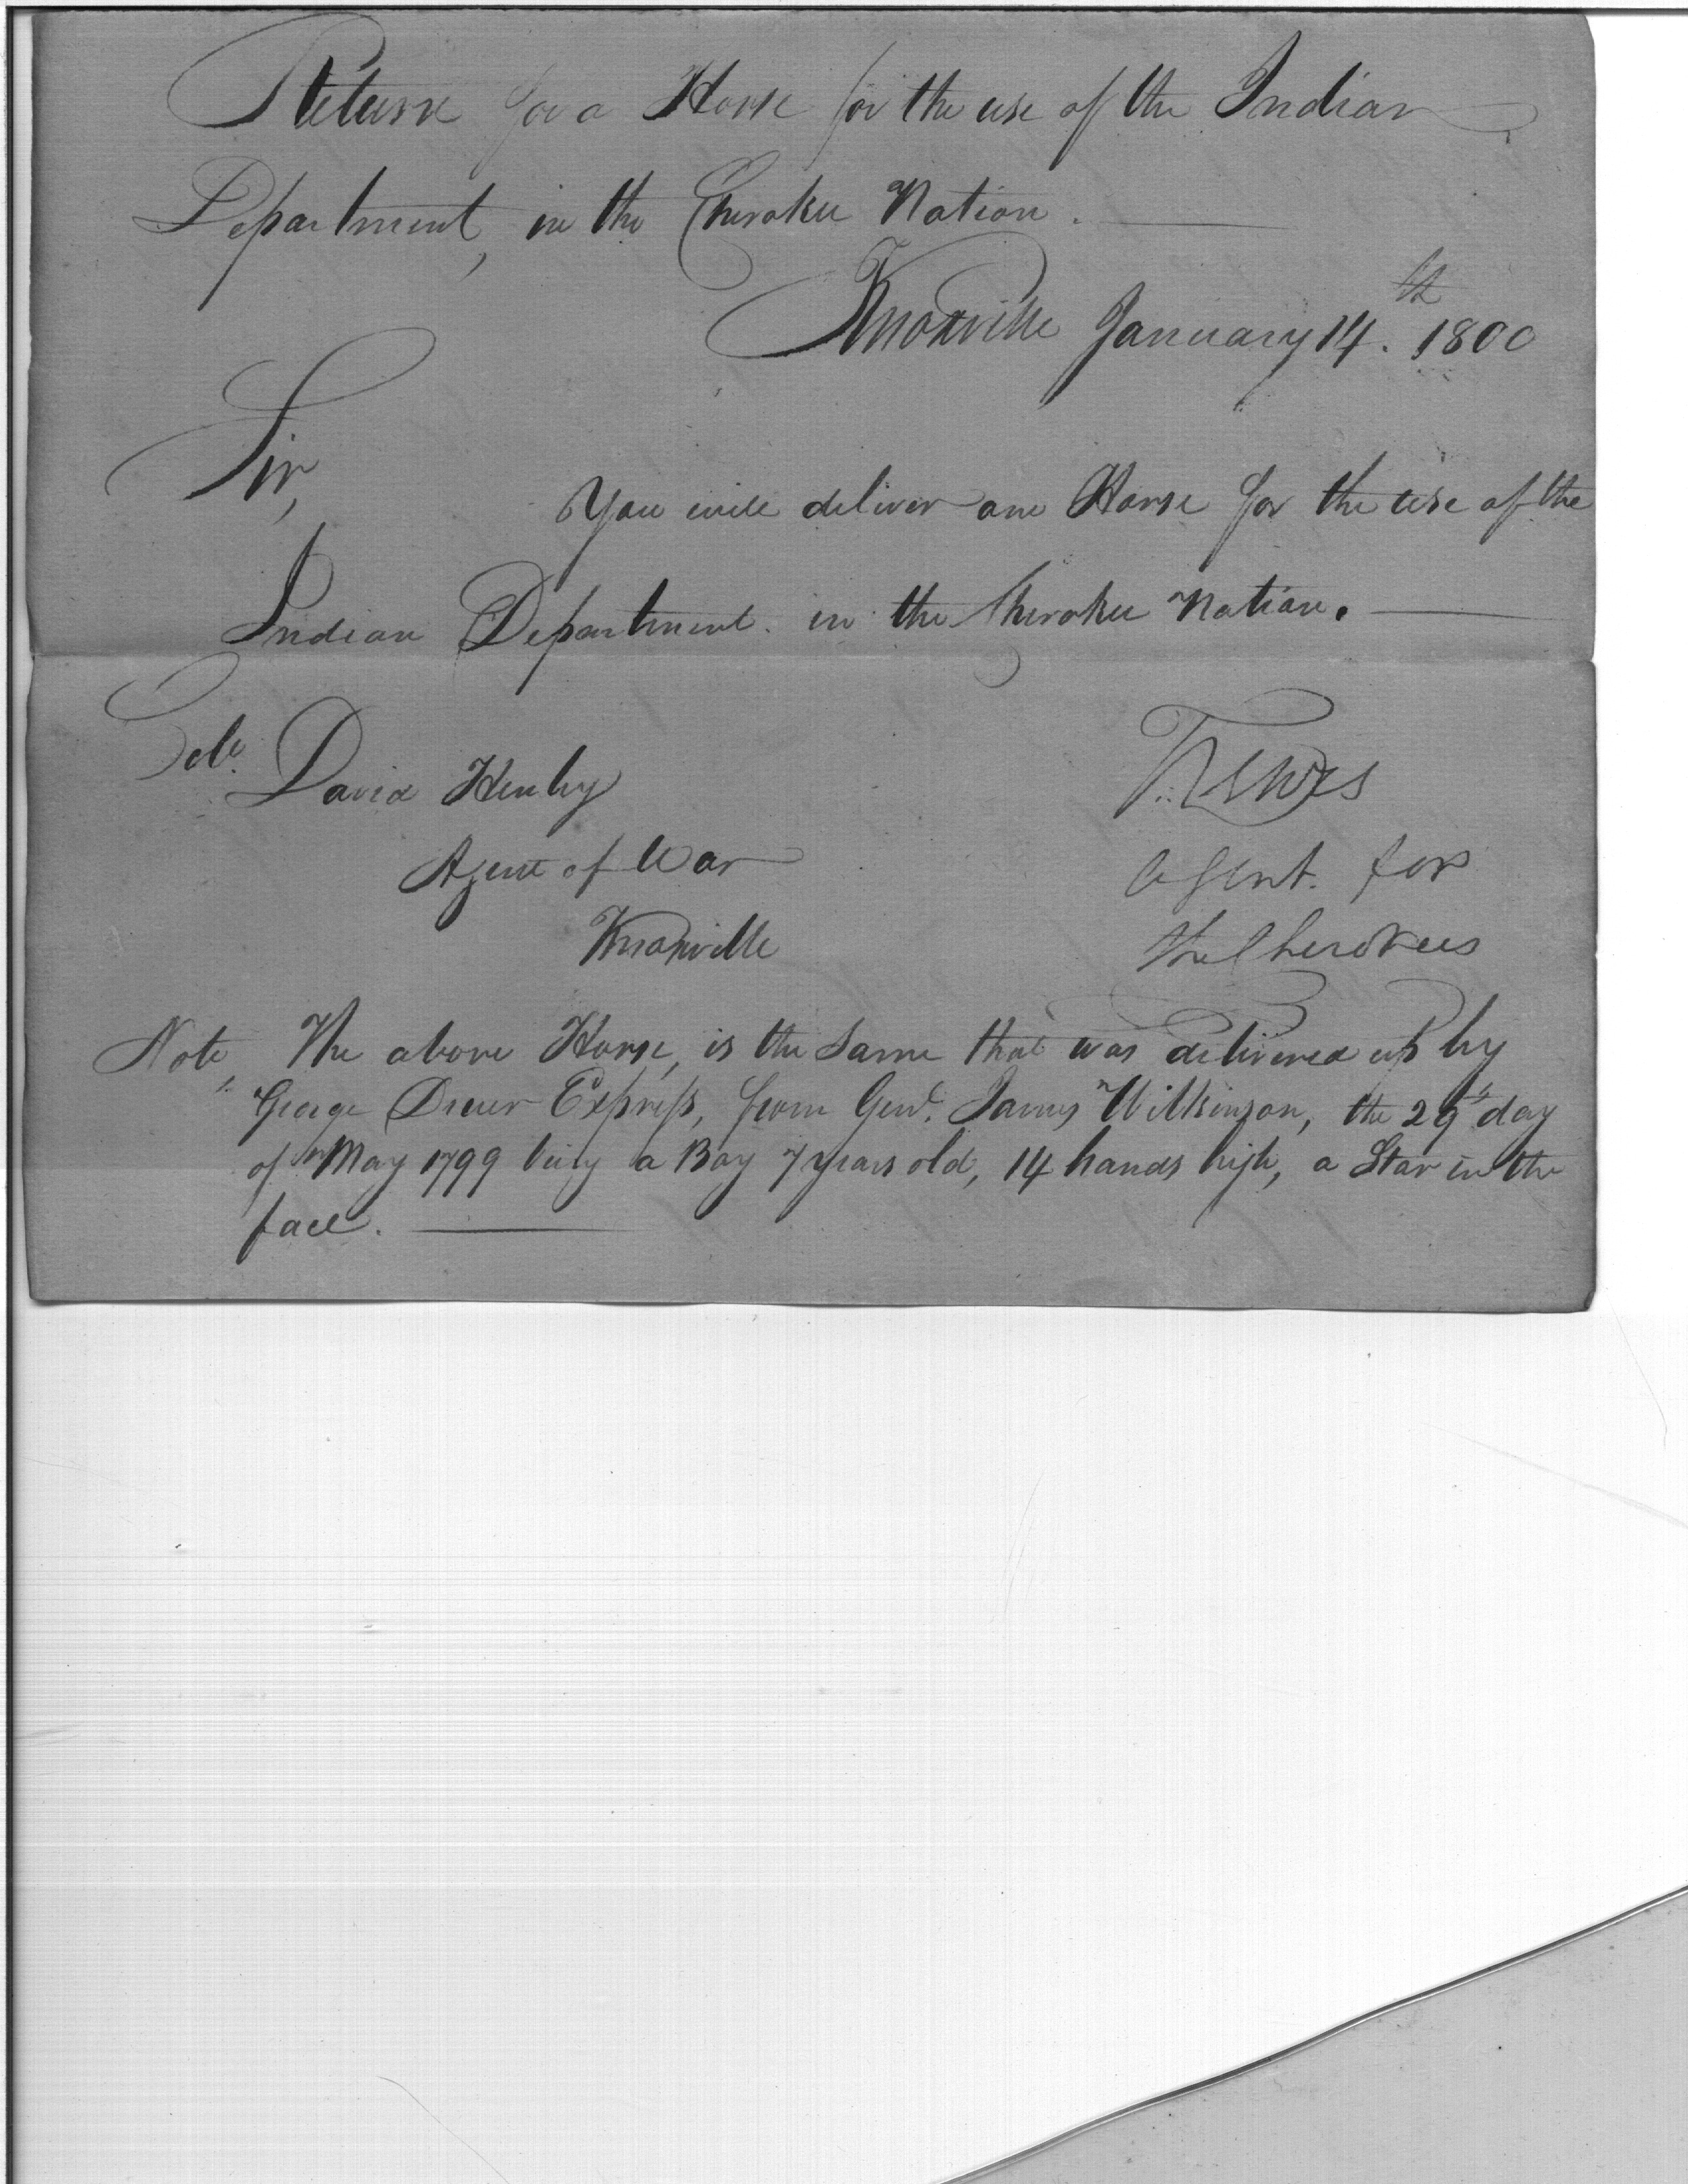 Return for a Horse for the use of the Indian
Department, in the Cherokee Nation.
Knoxville January 14th. 1800
Sir,
You will deliver one Horse for the use of the
Indian Department in the Cherokee Nation.
Colo. David Henley
Agent of War
Knoxville
T. Lewis
agent. for
the Cherokees
Note, The above Horse, is the same that was delivered up by
George Express, from Genl. James Wilkinson, the 29th day
of May 1799 being a Bay 7 years old, 14 hands high, a Star in the
face.